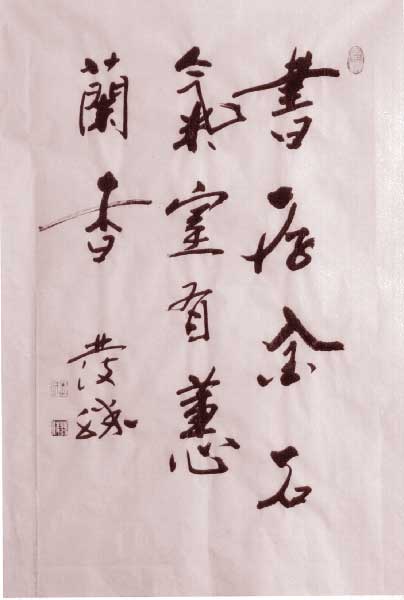 書存金石
氣室有蕙
蘭香